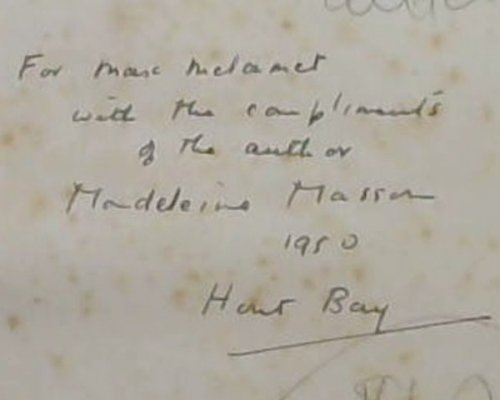 For Marc Melamet
with the compliments
of the author
Madeleine Masson
1950
Hout Bay